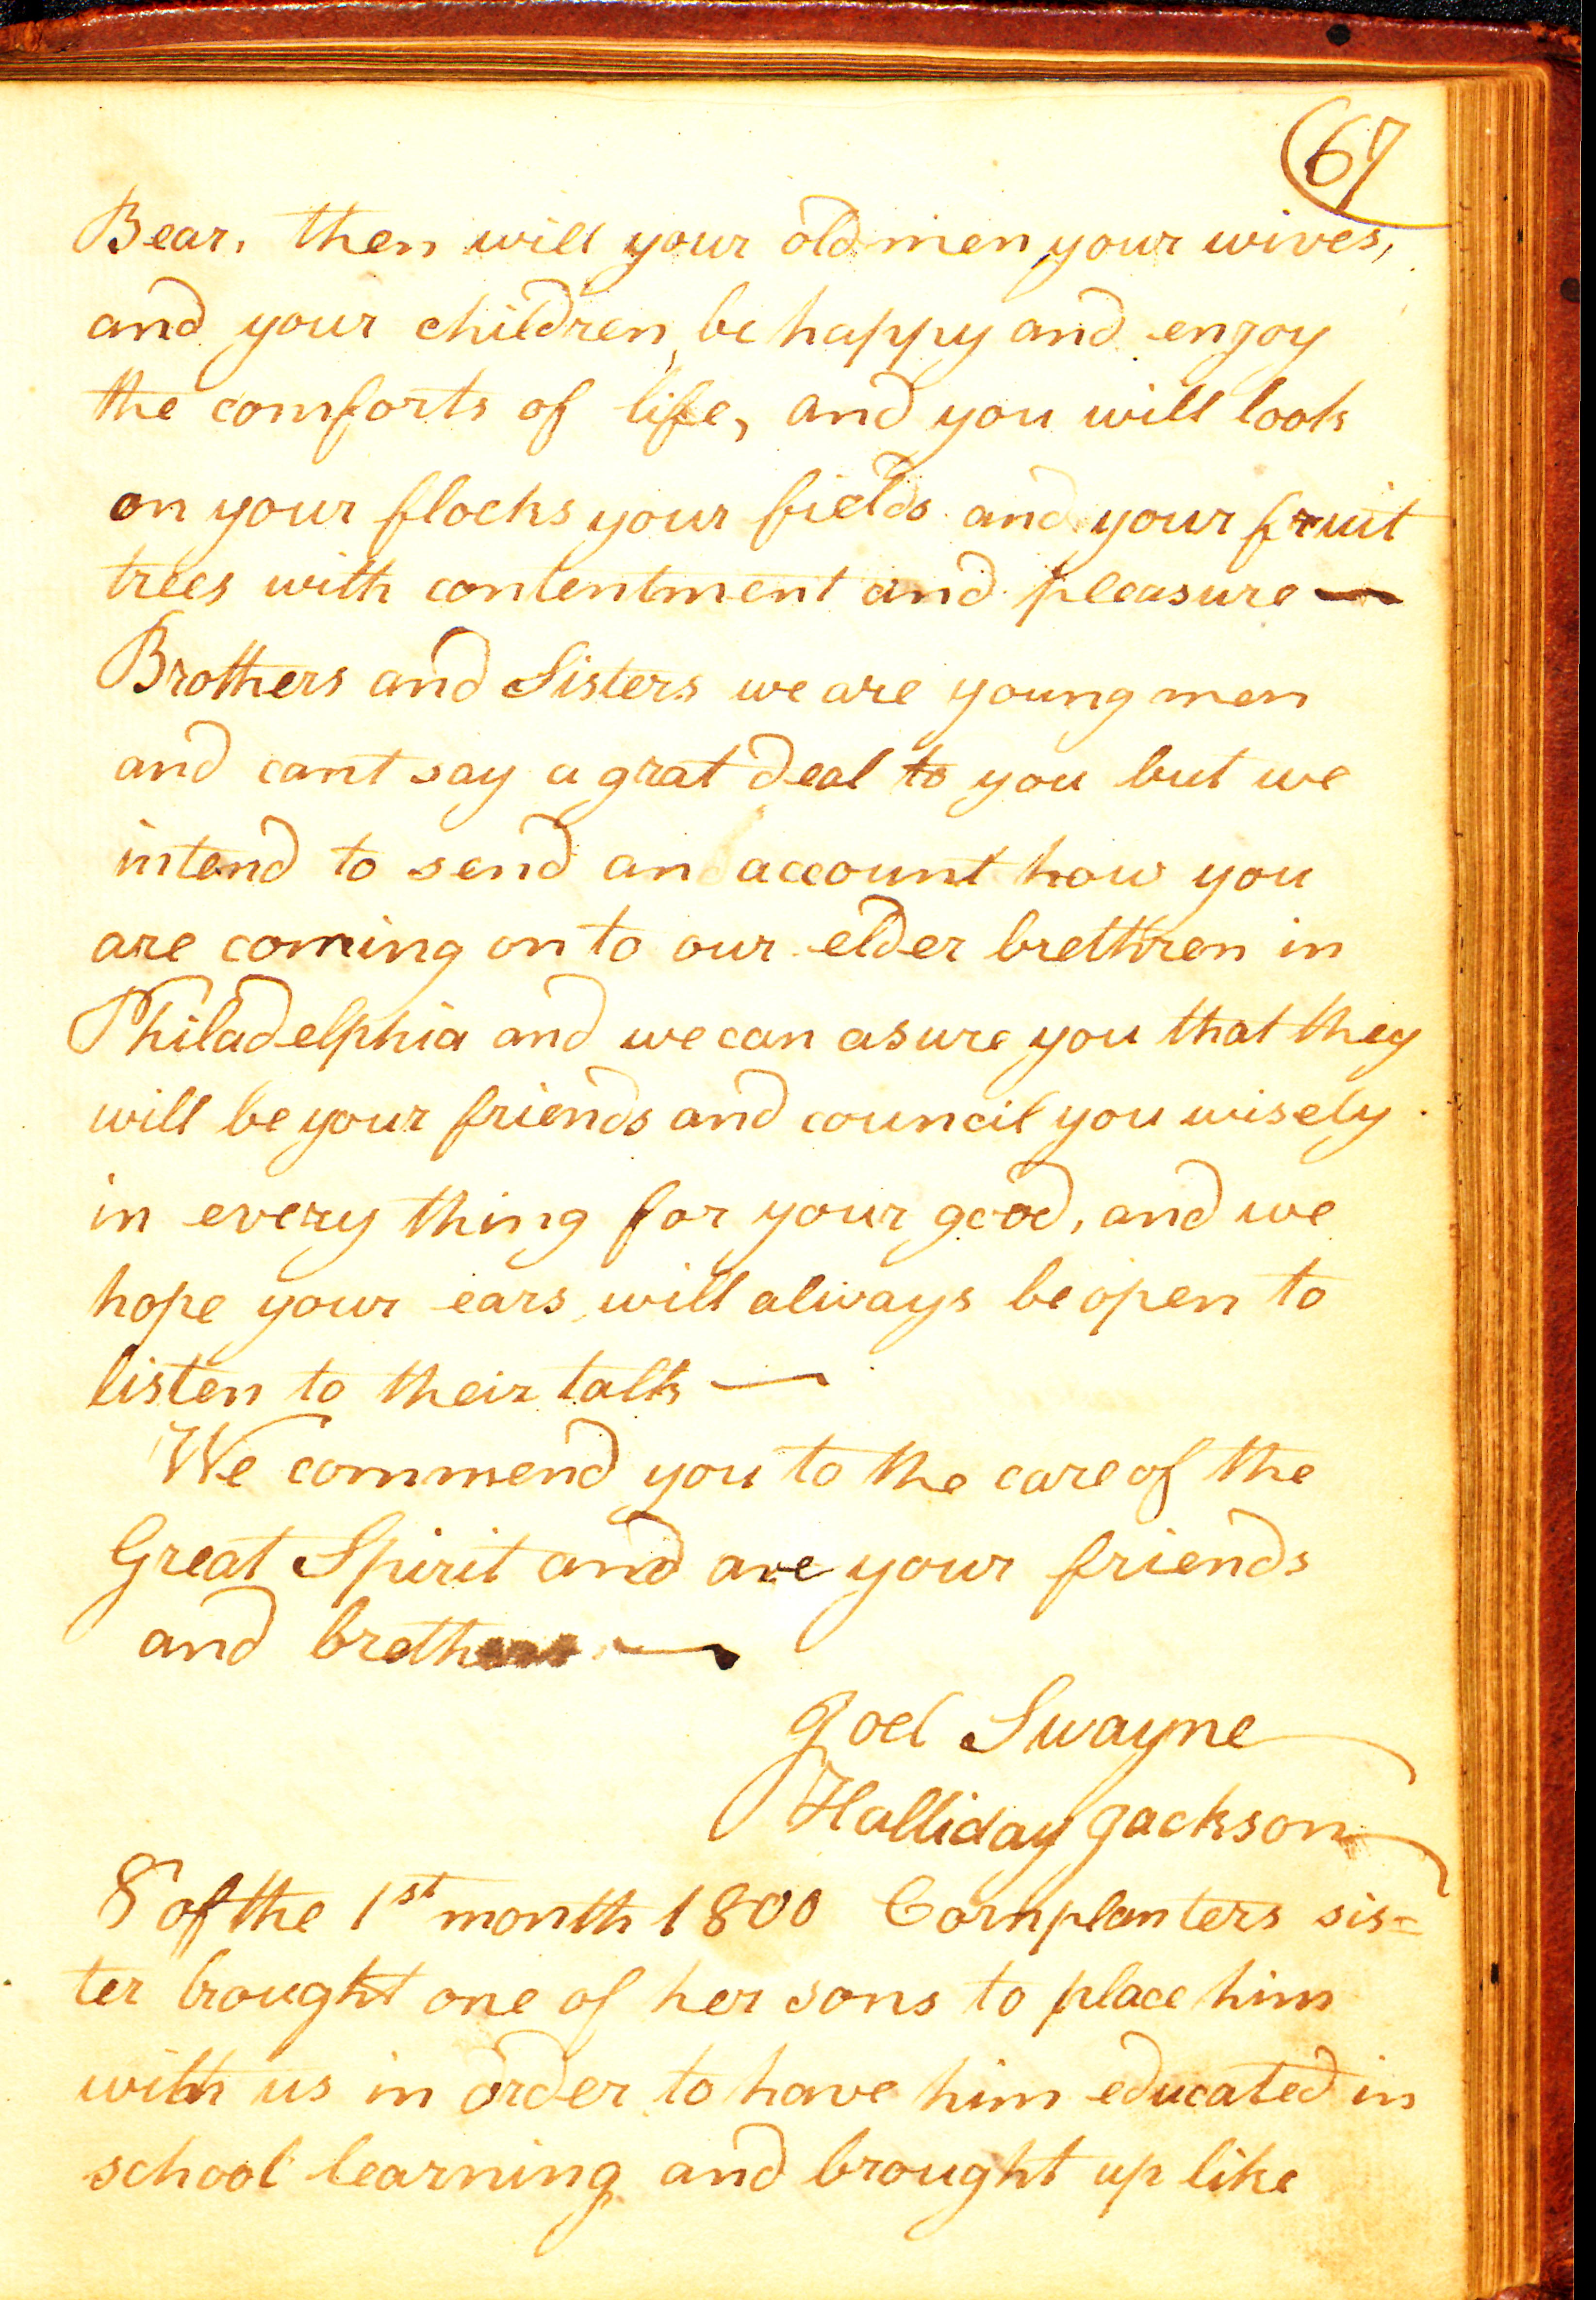 67
Bear, then will your old men your wives,
and your children, be happy and enjoy
the comforts of life, and you will look
on your flocks your fields and your fruit
trees with contentment and pleasure —
Brothers and Sisters we are young men
and cant say a grat deal to you but we
intend to send an account how you
are coming on to our elder brethren in
Philadelphia and we can asure you that they
will be your friends and council you wisely
in every thing for your good, and we
hope your ears will always be open to
listen to their talk —
We commend you to the care of the
Great Spirit and are your friends
and —
Joel Swayne
Halliday Jackson
8 of the 1st month 1800 Cornplanters sis=
ter brought one of her sons to place him
with us in order to have him educated in
school learning and brought up like